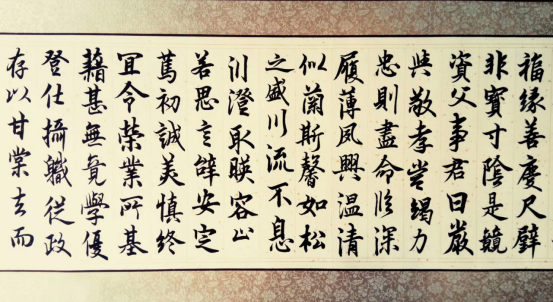 福緣善慶尺璧
非寶寸陰是競
資父事君曰嚴
與敬孝當竭力
忠則盡命臨深
履薄夙興温清
似蘭斯馨如松
之盛川流不息
渊澄取暎容止
若思言辭安定
篤初誠美慎終
宜令榮業所基
藉甚無竟學優
登仕攝職從政
存以甘棠去而